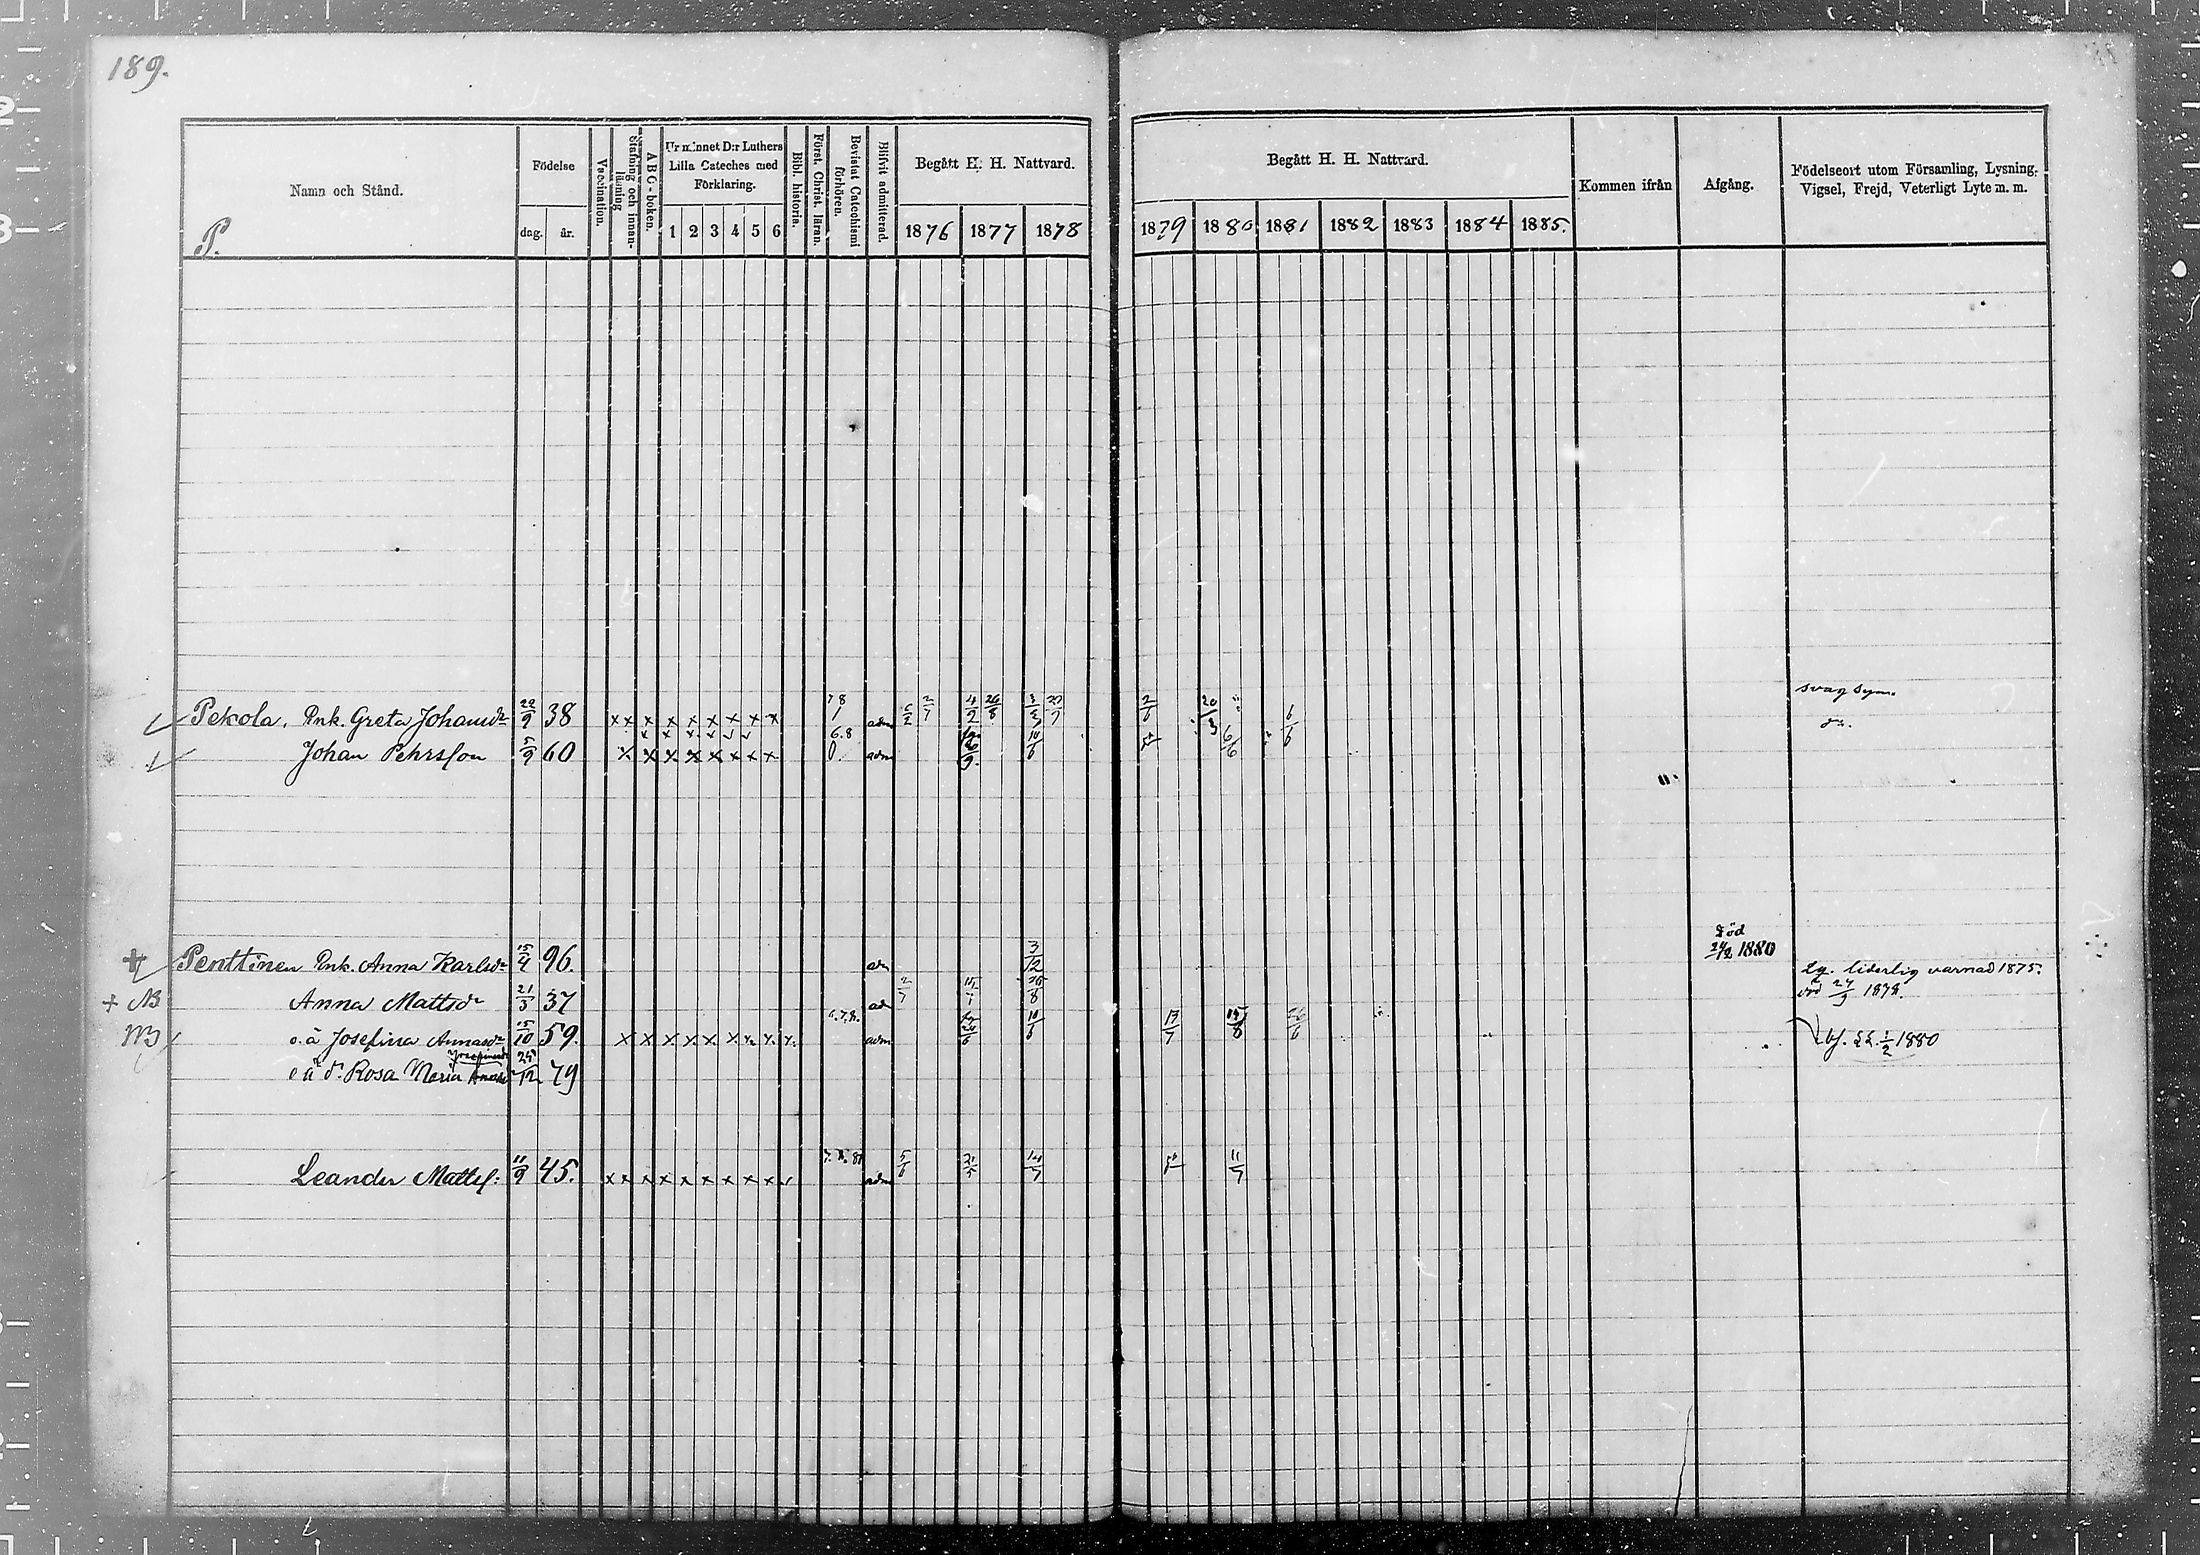 189.
Namn och Stånd.
P.
Födelse
dag. år.
Vaccination.
Stafning och innan-
läsning
ABC-boken.
Ur minnet D:r Luthers
Lilla Cateches med
Förklaring.
1 2 3 4 5 6
Bibl. historia.
Först. Christ. läran.
Bevistat Catechismi
förhören.
Blifvit admitterad.
Begått H. H. Nattvard.
1876 1877 1878
Begått H. H. Nattvard.
1879 1880 1881 1882 1883 1884 1885.
Kommen ifrån
Afgång.
Födelseort utom Församling, Lysning,
Vigsel, Frejd, Veterligt Lyte m. m.
Pekola, Enk. Greta Johansdr 22/9 38 x x x x x x x x x adm 2/7 4/2 26/8 2/6 20/3 6/6 svag syn.
Johan Pehrsson 5/9 60 x x x x x x x x 6.8 adm 10/6 6/6 do.
Penttinen Enk. Anna Karlsdr 15/4 96. adm 3/12 Död 24/2 1880
+ NB Anna Mattsdr 21/3 37 adm 2/7 Lg. liderlig varnad 1875.
1878.
NB o.ä Josefina Annasdr 15/10 59. x x x x x x adm 10/6 13/7 14/8 26/6 1/2 1880
o ä dr Rosa Maria Josefinasdr 25/12 79
Leander Mattss: 11/9 45. x x x x x x x x x adm 5/6 21/5 14/7 11/7